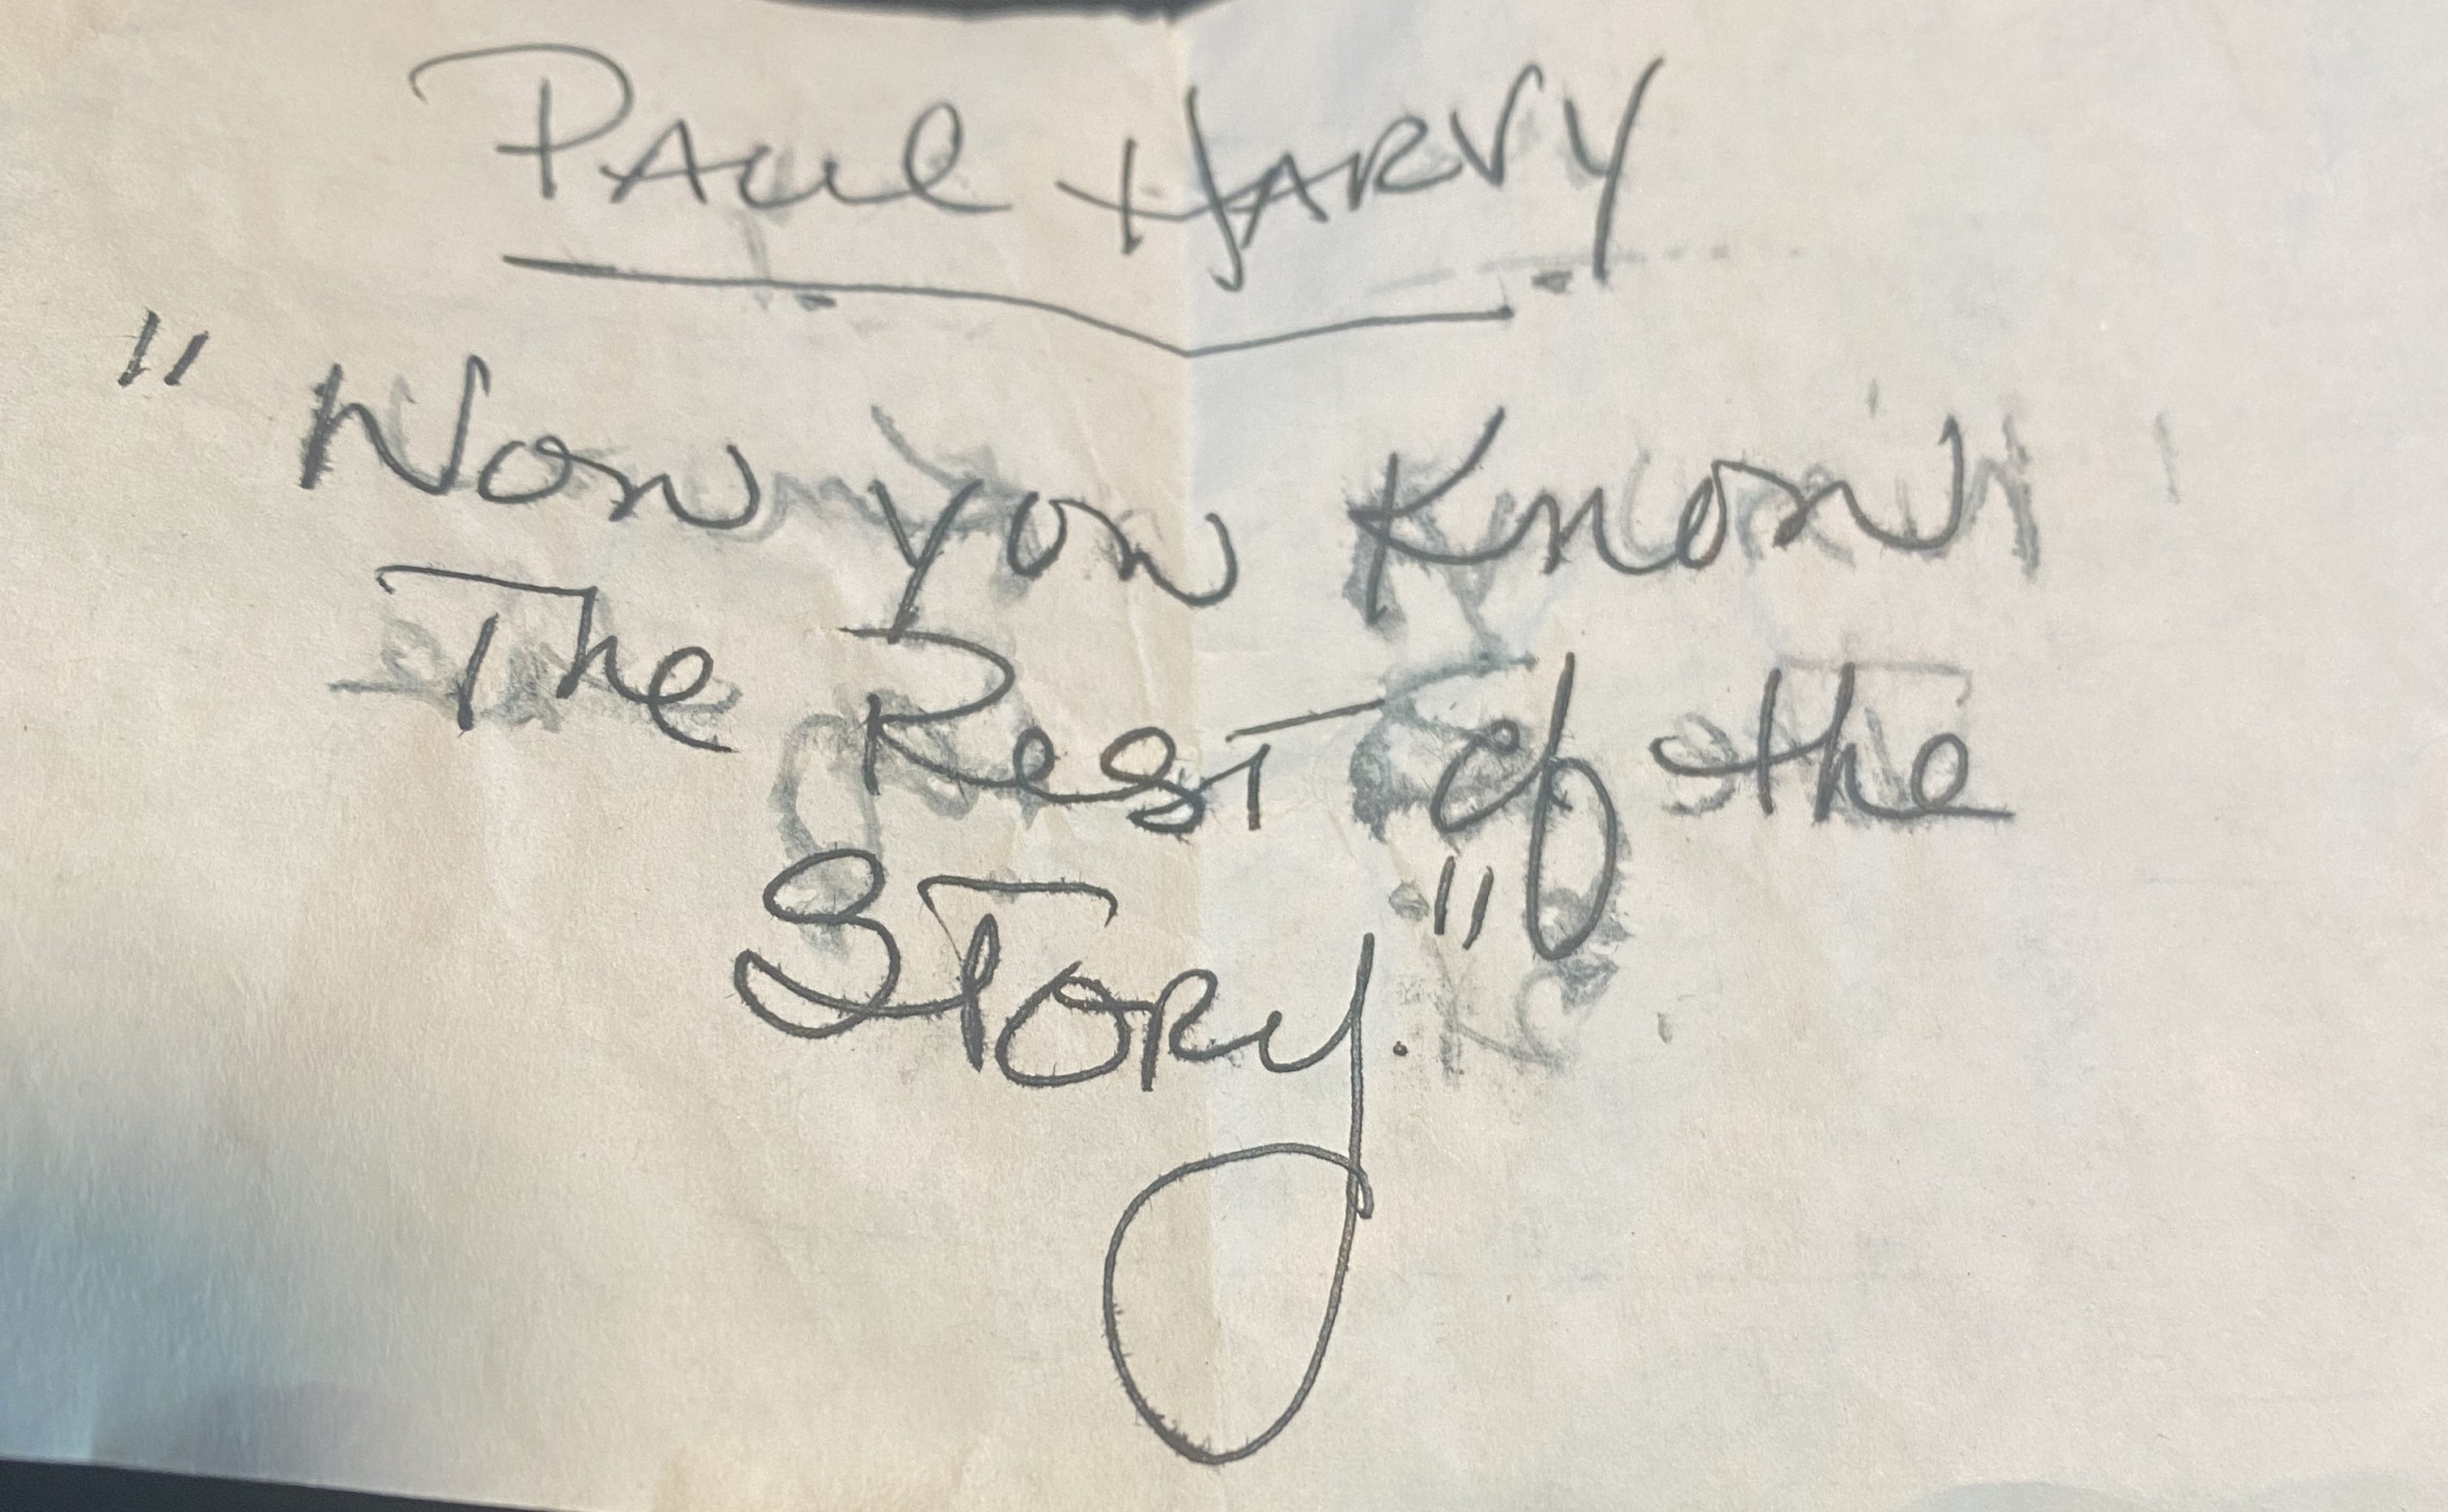 PAUL HARVY
"Now you Know
The Rest of the
STORY."